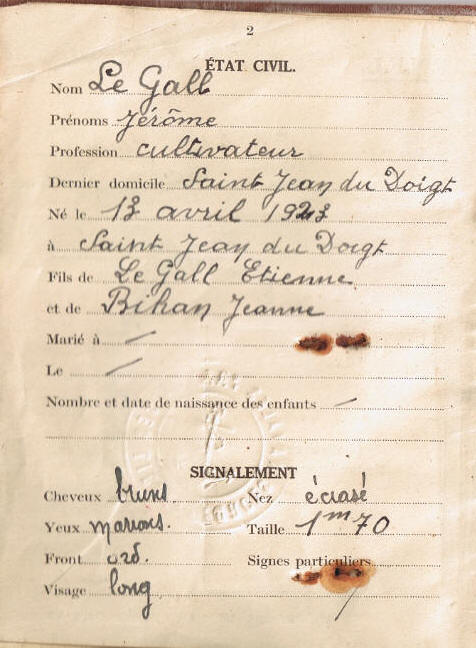 2
ÉTAT CIVIL.
Nom Le Gall
Prénoms Jérôme
Profession cultivateur
Dernier domicile Saint Jean du Doigt
Né le 13 avril 1923
à Saint Jean du Doigt
Fils de Le Gall Etienne
et de Bihan Jeanne
Marié à —
Le —
Nombre et date de naissance des enfants —
SIGNALEMENT
Cheveux bruns. Nez écrasé
Yeux marrons. Taille 1m70
Front ord. Signes particuliers
Visage long /